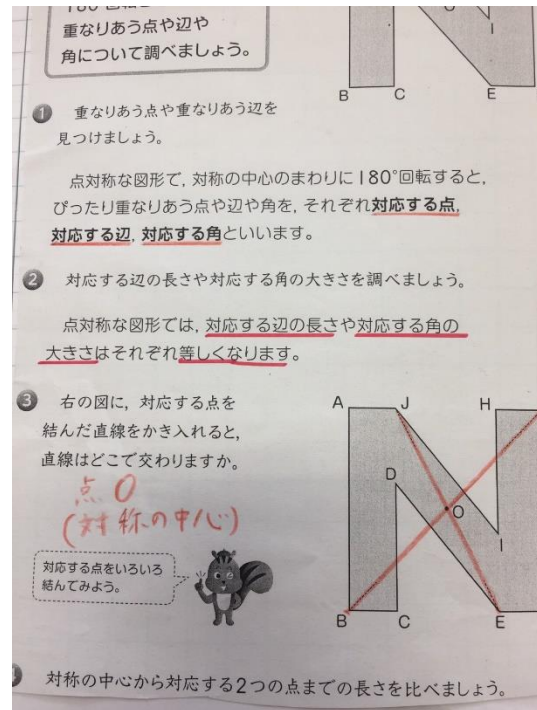 重なりあう点や辺や
角について調べましょう。
B C E
I
1 重なりあう点や重なりあう辺を
見つけましょう。
点対称な図形で,対称の中心のまわりに180°回転すると,
ぴったり重なりあう点や辺や角を,それぞれ対応する点,
対応する辺,対応する角といいます。
2 対応する辺の長さや対応する角の大きさを調べましょう。
点対称な図形では,対応する辺の長さや対応する角の
大きさはそれぞれ等しくなります。
3 右の図に,対応する点を
結んだ直線をかき入れると,
直線はどこで交わりますか。
点O
(対称の中心)
対応する点をいろいろ
結んでみよう。
A J H
D
O
I
B C E
対称の中心から対応する2つの点までの長さを比べましょう。